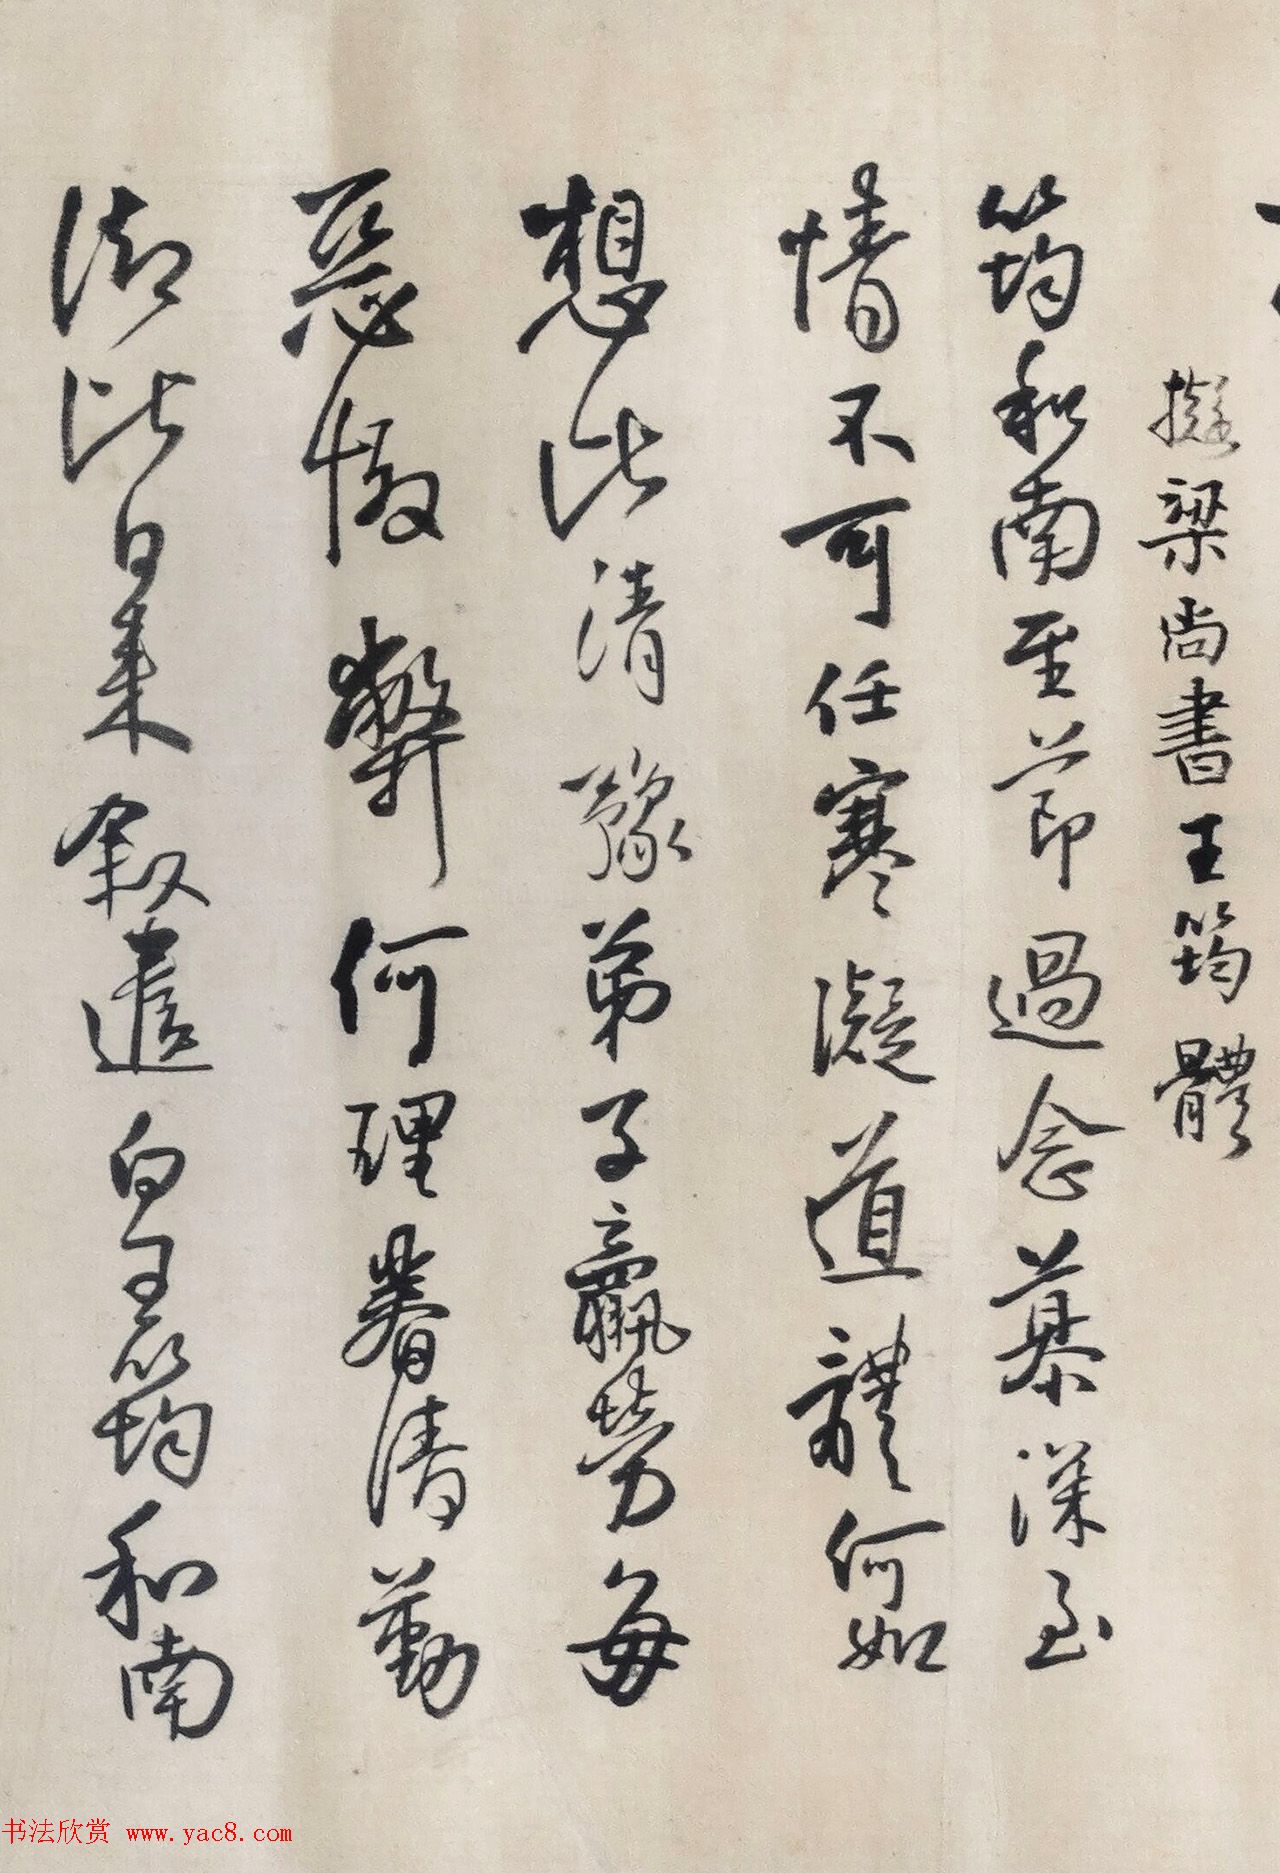 擬梁尚書王筠體
筠和南至節過念慕深至
情不可任寒凝道體何如
想比清豫弟子羸勞每
惡弊何理眷清勤
比日来叙遣白筠和南
书法欣赏 www.yac8.com